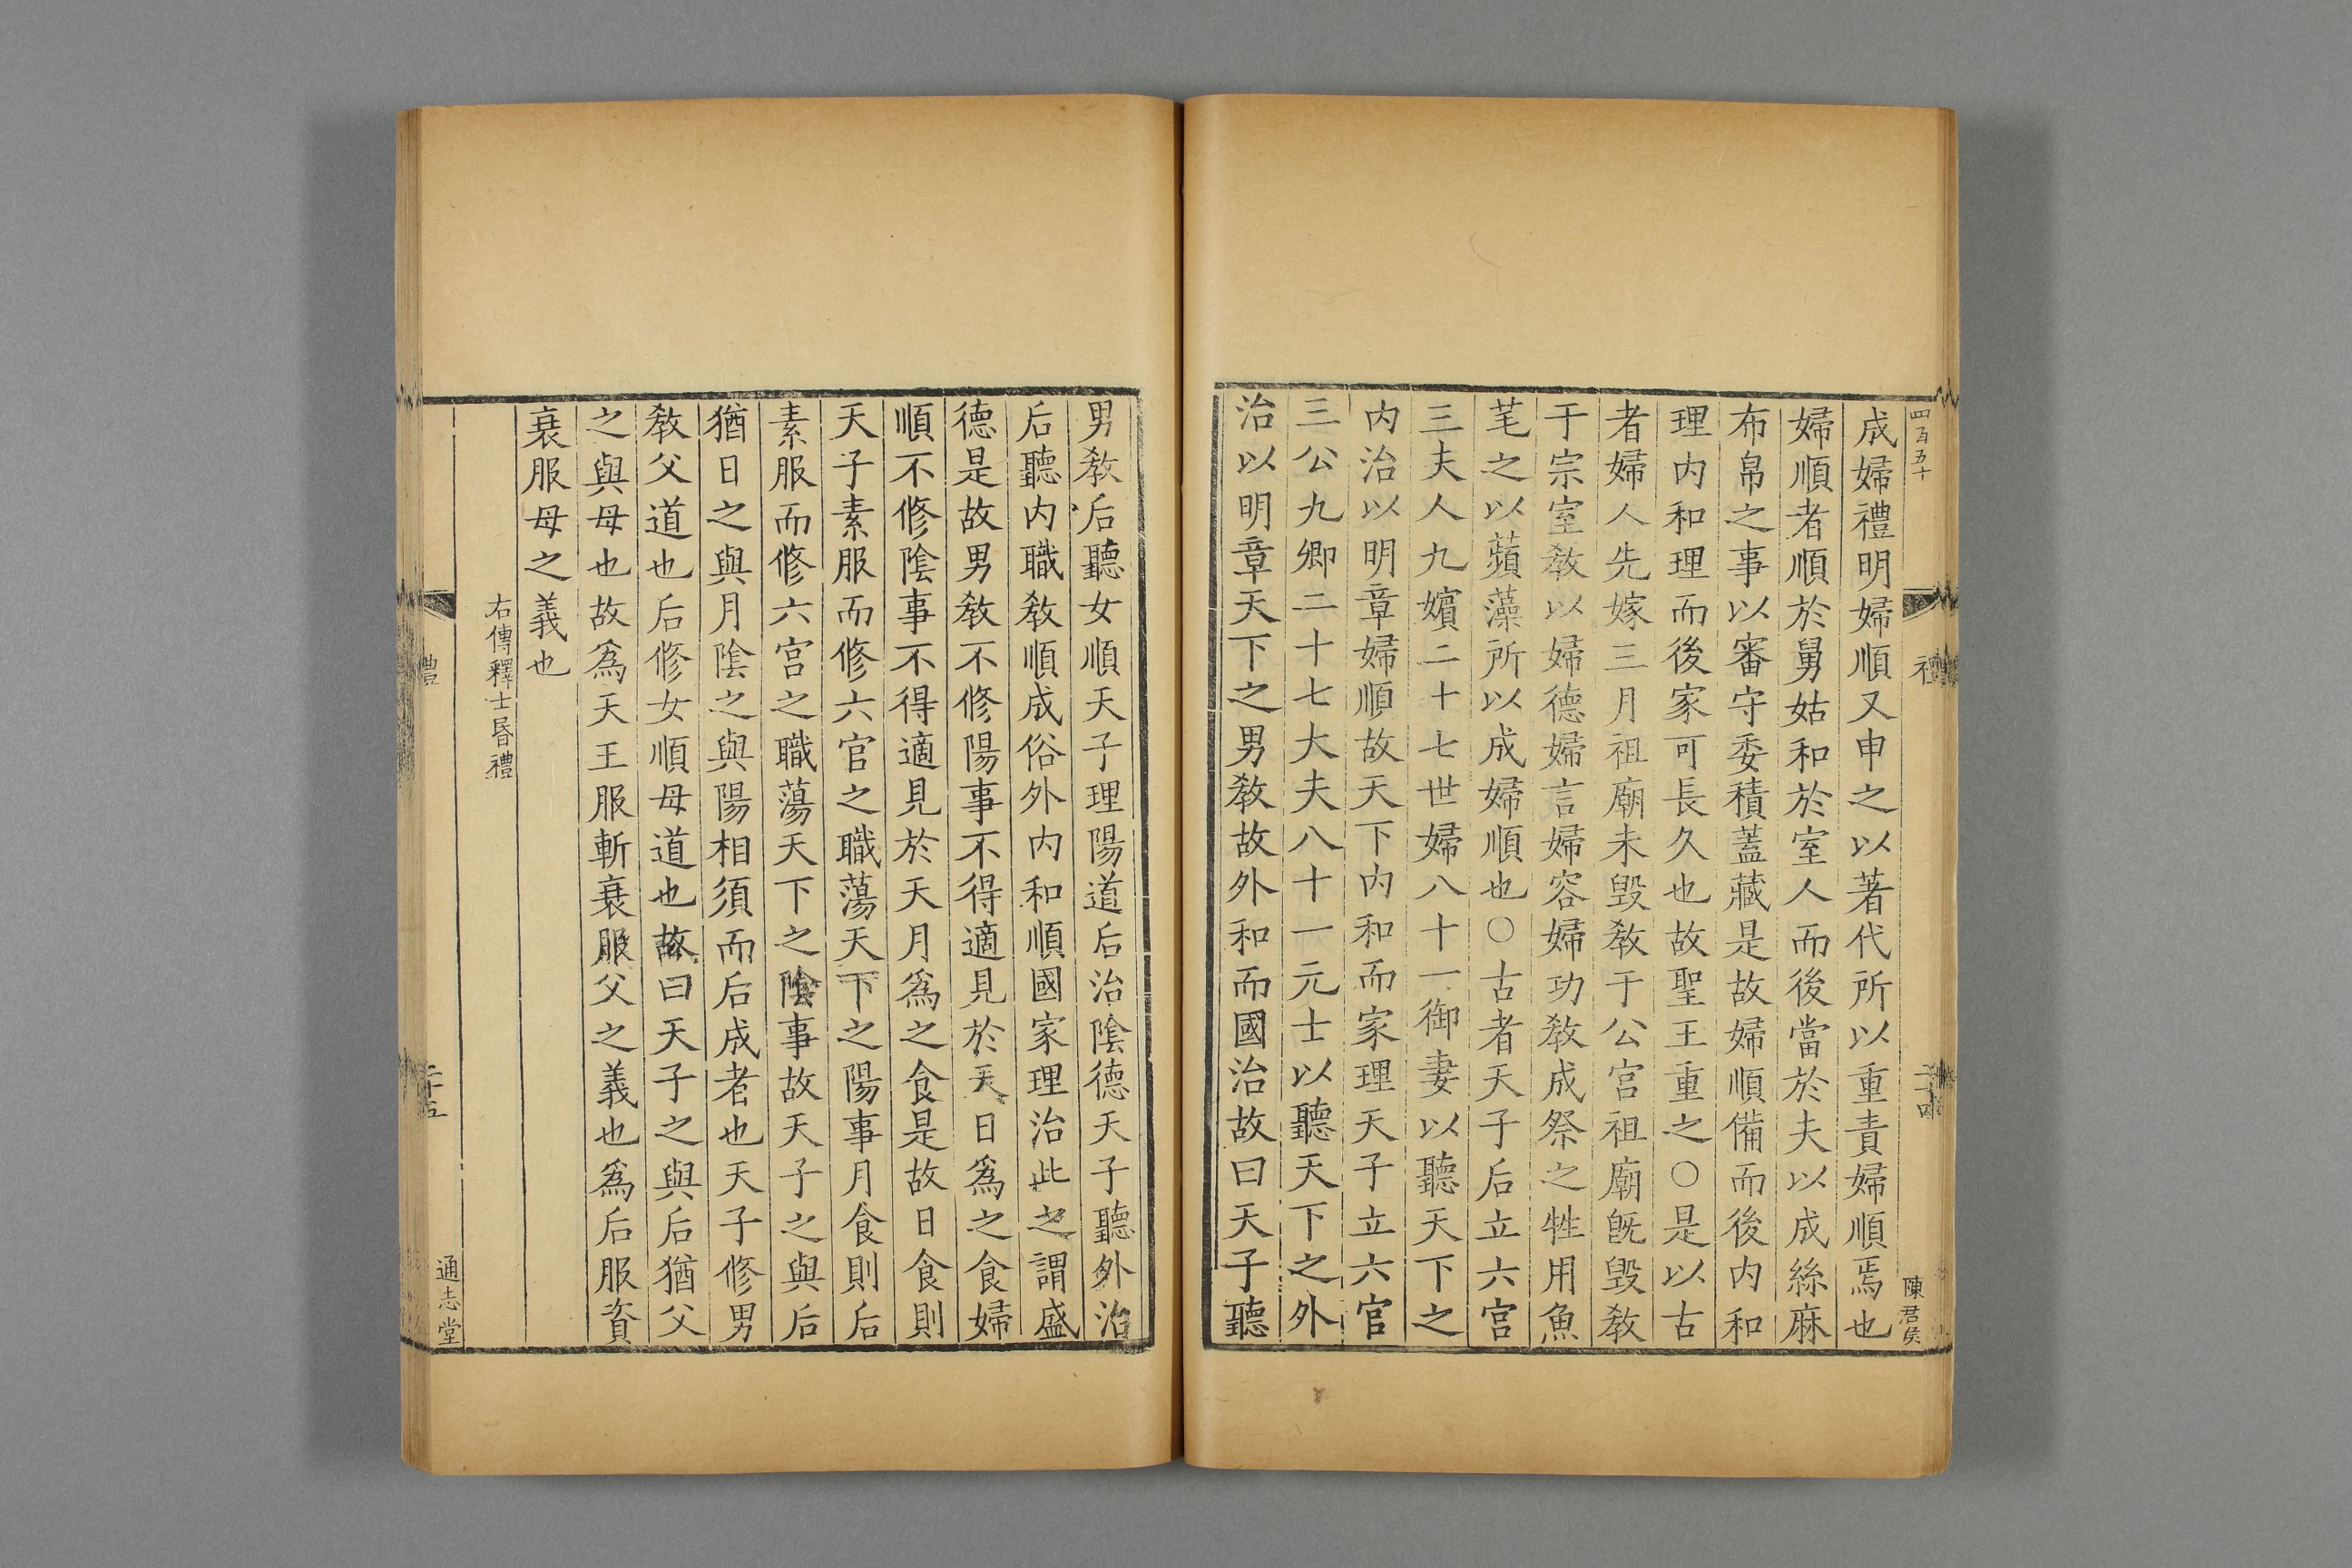 四百五十
禮
二十四
陳君侯
成婦禮明婦順又申之以著代所以重責婦順焉也
婦順者順於舅姑和於室人而後當於夫以成絲麻
布帛之事以審守委積蓋藏是故婦順備而後內和
理內和理而後家可長久也故聖王重之○是以古
者婦人先嫁三月祖廟未毀敎于公宮祖廟旣毀敎
于宗室敎以婦德婦言婦容婦功敎成祭之牲用魚
芼之以蘋藻所以成婦順也○古者天子后立六宮
三夫人九嬪二十七世婦八十一御妻以聽天下之
內治以明章婦順故天下內和而家理天子立六官
三公九卿二十七大夫八十一元士以聽天下之外
治以明章天下之男敎故外和而國治故曰天子聽
男敎后聽女順天子理陽道后治陰德天子聽外治
后聽內職敎順成俗外內和順國家理治此之謂盛
德是故男敎不修陽事不得適見於天日爲之食婦
順不修陰事不得適見於天月爲之食是故日食則
天子素服而修六官之職蕩天下之陽事月食則后
素服而修六宮之職蕩天下之陰事故天子之與后
猶日之與月陰之與陽相須而后成者也天子修男
敎父道也后修女順母道也故曰天子之與后猶父
之與母也故爲天王服斬衰服父之義也爲后服資
衰服母之義也
右傳釋士昏禮
禮
二十五
通志堂